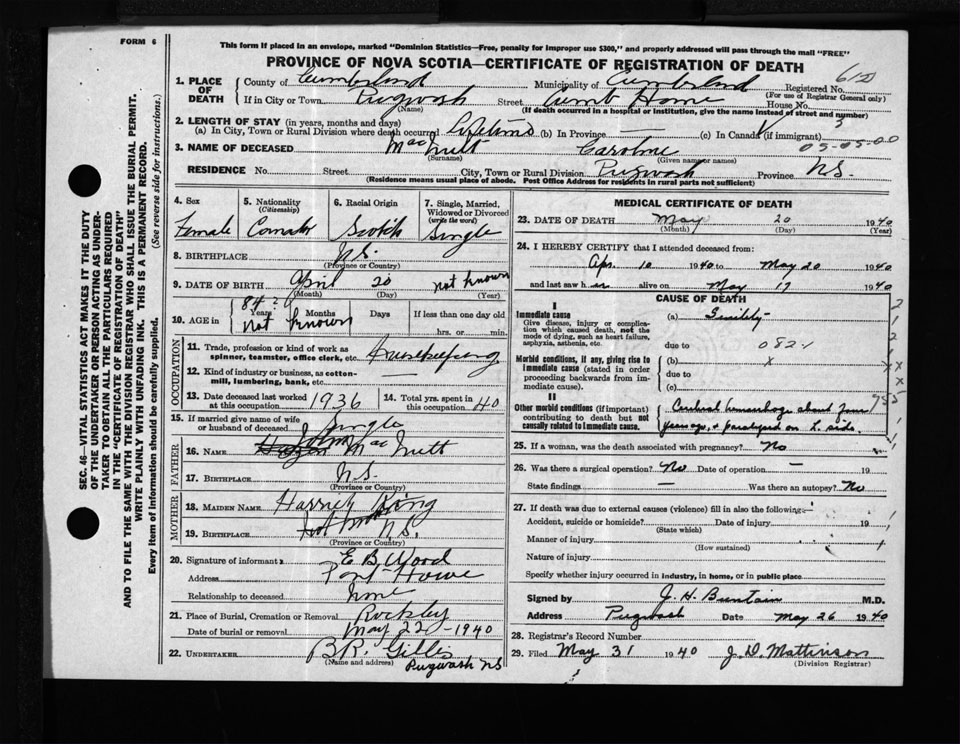 FORM 6
This form if placed in an envelope, marked "Dominion Statistics—Free, penalty for improper use $300," and properly addressed will pass through the mail "FREE"
PROVINCE OF NOVA SCOTIA—CERTIFICATE OF REGISTRATION OF DEATH
1. PLACE OF DEATH County of Cumberland Municipality of Cumberland Registered No. 612
(For use of Registrar General only)
If in City or Town Pugwash Street Cumb Home House No.
(If death occurred in a hospital or institution, give the name instead of street and number)
2. LENGTH OF STAY (in years, months and days)
(a) In City, Town or Rural Division where death occurred Lifetime (b) In Province — (c) In Canada (if immigrant)
3. NAME OF DECEASED MacNutt Caroline 05-05-00
(Surname) (Given name or names)
RESIDENCE No. Street City, Town or Rural Division Pugwash Province N.S.
(Residence means usual place of abode. Post Office Address for residents in rural parts not sufficient)
4. Sex Female
5. Nationality (Citizenship)
6. Racial Origin Scotch
7. Single, Married, Widowed or Divorced (write the word) Single
8. BIRTHPLACE N.S.
(Province or Country)
9. DATE OF BIRTH April 20 not known
(Month) (Day) (Year)
10. AGE in 84 ? Years Months Days If less than one day old
not known hrs. or min.
OCCUPATION
11. Trade, profession or kind of work as spinner, teamster, office clerk, etc. Housekeeping
12. Kind of industry or business, as cotton-mill, lumbering, bank, etc. —
13. Date deceased last worked at this occupation 1936
14. Total yrs. spent in this occupation 40
15. If married give name of wife or husband of deceased Single
FATHER
16. NAME John MacNutt
17. BIRTHPLACE N.S.
(Province or Country)
MOTHER
18. MAIDEN NAME King
19. BIRTHPLACE N.S.
(Province or Country)
20. Signature of informant E B Wood
Address Port Howe
Relationship to deceased none
21. Place of Burial, Cremation or Removal Rockley
Date of burial or removal May 22 1940
22. UNDERTAKER B R. Gillis
(Name and address) Pugwash NS
MEDICAL CERTIFICATE OF DEATH
23. DATE OF DEATH May 20 1940
(Month) (Day) (Year)
24. I HEREBY CERTIFY that I attended deceased from:
Apr. 10 1940 to May 20 1940
and last saw her alive on May 17 1940
CAUSE OF DEATH
I
Immediate cause (a) Senility
Give disease, injury or complication which caused death, not the mode of dying, such as heart failure, asphyxia, asthenia, etc.
due to 082.1
Morbid conditions, if any, giving rise to immediate cause (stated in order proceeding backwards from immediate cause).
(b) x
due to
(c)
II
Other morbid conditions (if important) contributing to death but not causally related to immediate cause.
Cerebral hemorrhage about four years ago, & paralyzed on L. side.
25. If a woman, was the death associated with pregnancy? No
26. Was there a surgical operation? No Date of operation — 19
State findings — Was there an autopsy? No
27. If death was due to external causes (violence) fill in also the following:—
Accident, suicide or homicide? Date of injury 19
(State which)
Manner of injury
(How sustained)
Nature of injury
Specify whether injury occurred in industry, in home, or in public place
Signed by J. H. Buntain M.D.
Address Pugwash Date May 26 1940
28. Registrar's Record Number
29. Filed May 31 1940 J. D. Mattinson
(Division Registrar)
SEC. 46—VITAL STATISTICS ACT MAKES IT THE DUTY
OF THE UNDERTAKER OR PERSON ACTING AS UNDER-
TAKER TO OBTAIN ALL THE PARTICULARS REQUIRED
IN THE "CERTIFICATE OF REGISTRATION OF DEATH"
AND TO FILE THE SAME WITH THE DIVISION REGISTRAR WHO SHALL ISSUE THE BURIAL PERMIT.
WRITE PLAINLY WITH UNFADING INK. THIS IS A PERMANENT RECORD.
Every item of information should be carefully supplied. (See reverse side for instructions.)